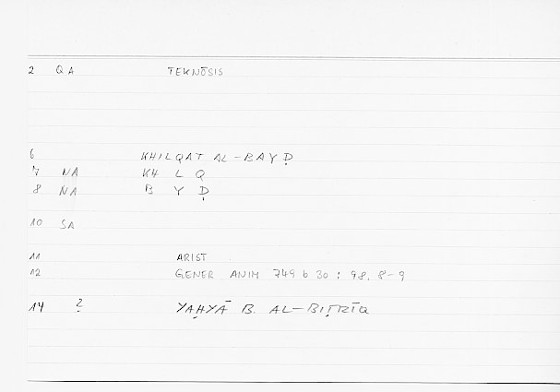 2 QA TEKNŌSIS
6 KHILQAT AL-BAYḌ
7 NA KH L Q
8 NA B Y Ḍ
10 SA
11 ARIST
12 GENER ANIM 749 b 30 : 98. 8-9
14 ? YAḤYĀ B. AL-BIṬRĪQ